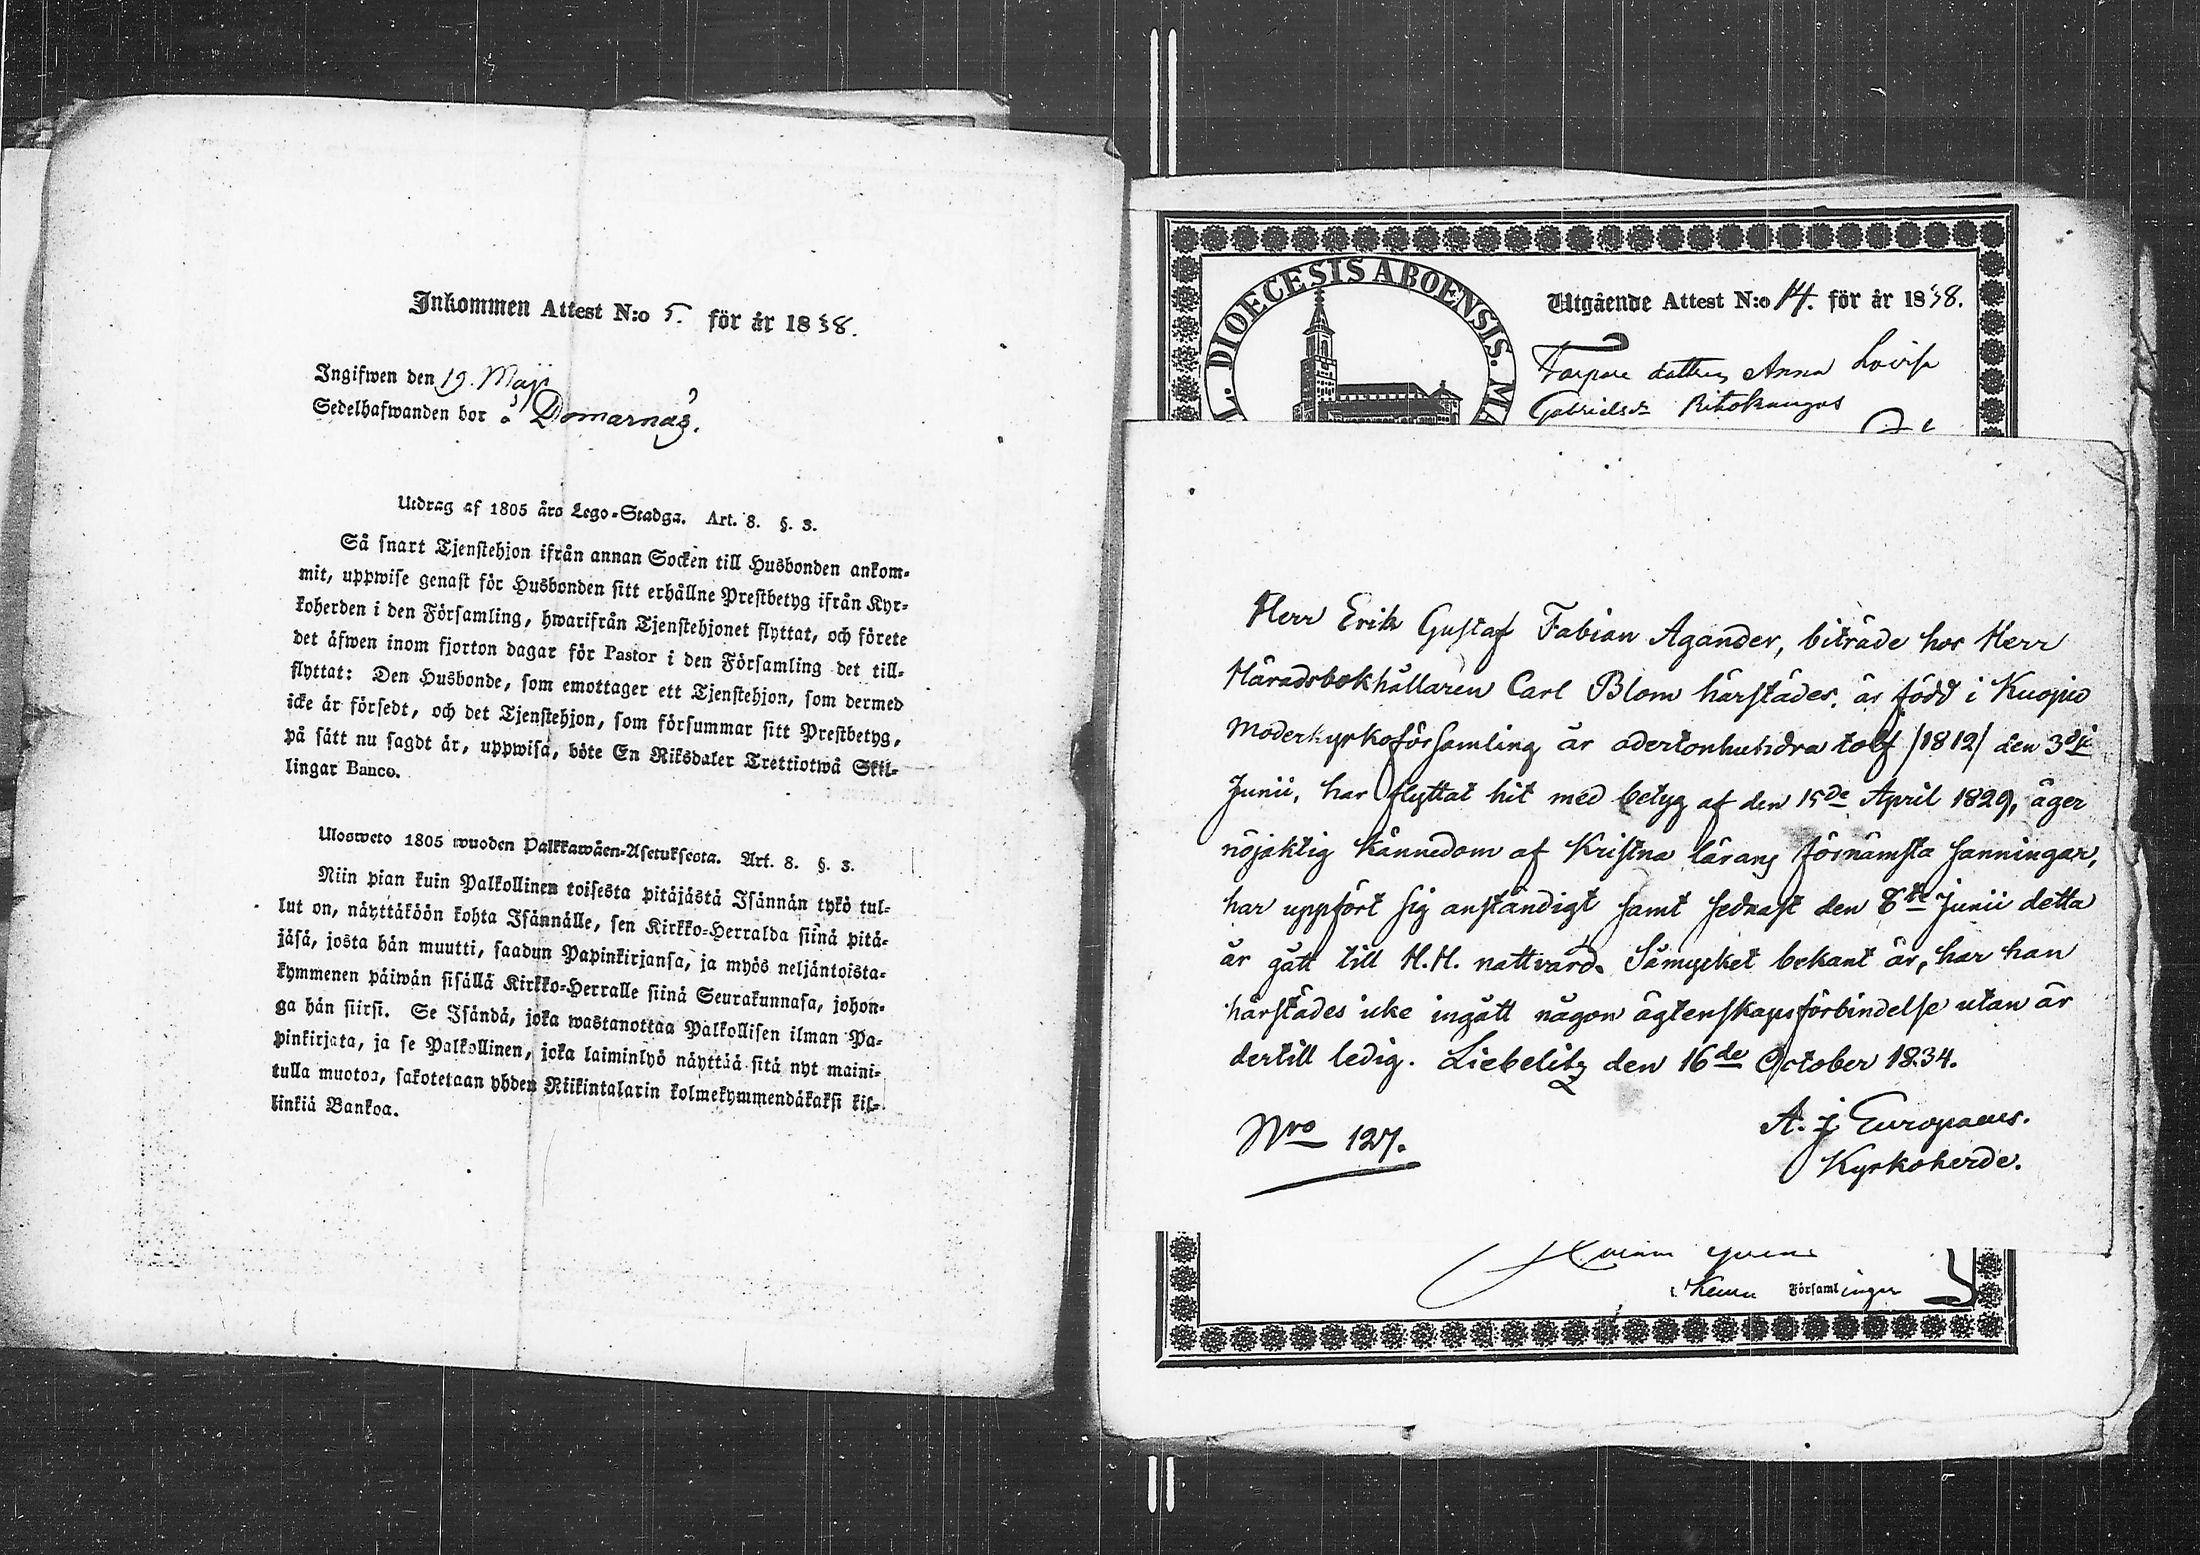 Inkommen Attest N:o 5. för år 1838.
Ingifwen den 19. Maji
Sedelhafwanden bor å Domarnäs.
Utdrag af 1805 års Lego-Stadga. Art. 8. §. 3.
Så snart Tjenstehjon ifrån annan Socken till Husbonden ankom-
mit, uppwise genast för Husbonden sitt erhållne Prestbetyg ifrån Kyr-
koherden i den Församling, hwarifrån Tjenstehjonet flyttat, och förete
det äfwen inom fjorton dagar för Pastor i den Församling det till-
flyttat: Den Husbonde, som emottager ett Tjenstehjon, som dermed
icke är försedt, och det Tjenstehjon, som försummar sitt Prestbetyg,
på sätt nu sagdt är, uppwisa, böte En Riksdaler Trettiotwå Skil-
lingar Banco.
Ulosweto 1805 wuoden Palkkawäen-Asetuksesta. Art. 8. §. 3.
Niin pian kuin Palkollinen toisesta pitäjästä Isännän tykö tul-
lut on, näyttäköön kohta Isännälle, sen Kirkko-Herralda siinä pitä-
jäsä, josta hän muutti, saadun Papinkirjansa, ja myös neljäntoista-
kymmenen päiwän sisällä Kirkko-Herralle siinä Seurakunnasa, johon-
ga hän siirsi. Se Isändä, joka wastanottaa Palkollisen ilman Pa-
pinkirjata, ja se Palkollinen, joka laiminlyö näyttää sitä nyt maini-
tulla muotoa, sakotetaan yhden Riikintalarin kolmekymmendäkaksi kil-
linkiä Bankoa.
DIOECESIS ABOENSIS. MA
Utgående Attest N:o 14. för år 1838.
Torpare dottren Anna Lovisa
Gabrielsdr Ritokangas
Herr Erik Gustaf Fabian Agander, biträde hos Herr
Häradsbokhållaren Carl Blom härstädes, är född i Kuopio
Moderkyrkoförsamling år adertonhundra tolf /1812/ den 3dje
Junii, har flyttat hit med betyg af den 15de April 1829, äger
nöjaktig kännedom af Kristna lärans förnämsta sanningar,
har uppfört sig anständigt samt sednast den 8de Junii detta
år gått till H.H. nattvard. Såmycket bekant är, har han
härstädes icke ingått någon ägtenskapsförbindelse utan är
dertill ledig. Liebelitz den 16de October 1834.
Nro 127.
A. J. Europaeus.
Kyrkoherde.
i Kemi Församlingar